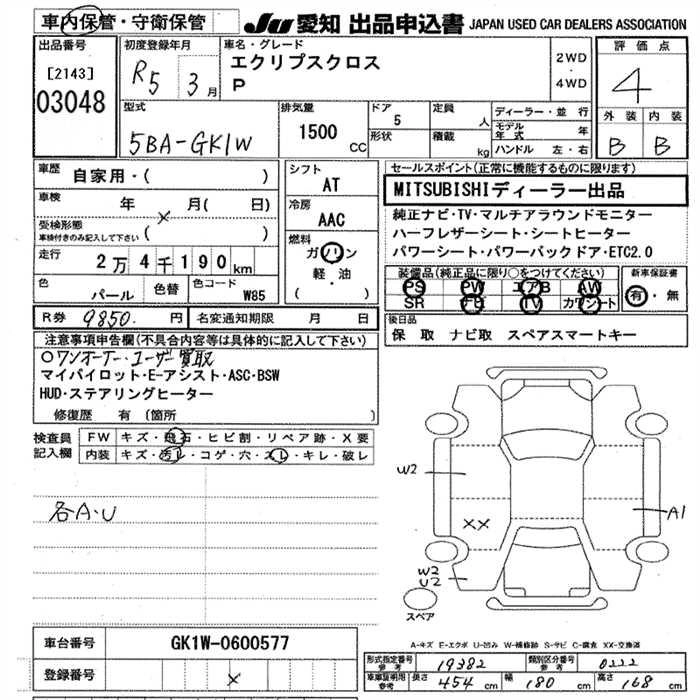 車内保管・守衛保管
JU 愛知 出品申込書 JAPAN USED CAR DEALERS ASSOCIATION
出品番号
[2143]
03048
初度登録年月
R5 3月
車名・グレード
エクリプスクロス
P
2WD
・
4WD
評価点
4
外装 内装
B B
型式
5BA-GK1W
排気量
1500
CC
ドア
5
形状
定員
人
積載
kg
ディーラー・並行
モデル年式 年
ハンドル 左・右
車歴
自家用・( )
車検
年 × 月( 日)
受検形態
車検付きのみ記入して下さい ( )
走行
2万4千190km
色
パール
色替
色コード
W85
シフト
AT
冷房
AAC
燃料
ガソリン
軽・油
( )
セールスポイント(正常に機能するものに限ります)
MITSUBISHIディーラー出品
純正ナビ・TV・マルチアラウンドモニター
ハーフレザーシート・シートヒーター
パワーシート・パワーバックドア・ETC2.0
装備品(純正品に限り○をつけてください)
PS PW エアB AW
SR ナビ TV カワシート
新車保証書
有・無
R券 9850. 円 名変通知期限 月 日
後日品
保 取 ナビ取 スペアスマートキー
注意事項申告欄(不具合内容等は具体的に記入して下さい)
○ワンオーナー・ユーザー買取
マイパイロット・E-アシスト・ASC・BSW
HUD・ステアリングヒーター
修復歴 有 (箇所 )
検査員記入欄
FW キズ・飛石・ヒビ割・リペア跡・X要
内装 キズ・汚レ・コゲ・穴・スレ・キレ・破レ
各A・U
W2
XX
A1
W2
U2
スペア
A-キズ E-エクボ U-凹み W-補修跡 S-サビ C-腐食 XX-交換済
車台番号 GK1W-0600577
登録番号 ×
型式指定番号 参考 19382 類別区分番号 参考 0222
車庫証明用 参考 長さ 454 cm 幅 180 cm 高さ 168 cm